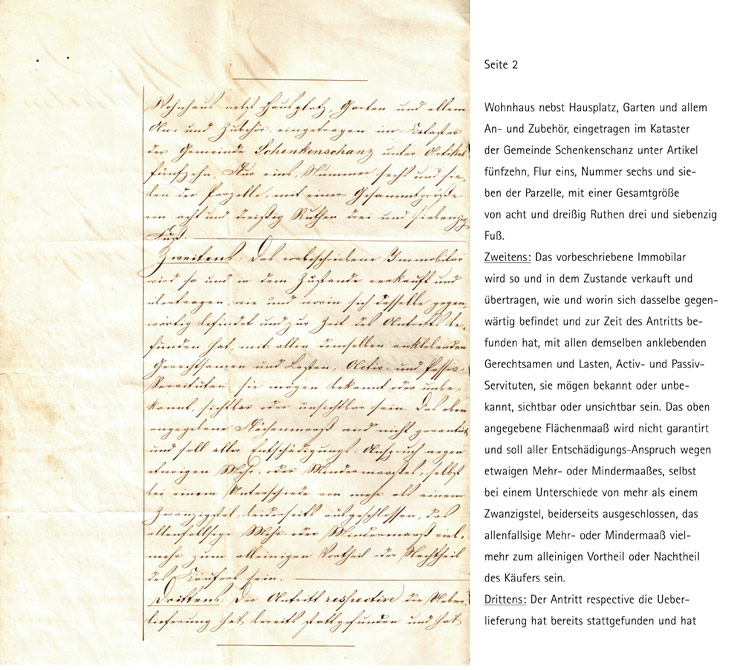 Wohnhaus nebst Hausplatz, Garten und allem
An- und Zubehör, eingetragen im Kataster
der Gemeinde Schenkenschanz unter Artikel
fünfzehn, Flur eins, Nummer sechs und sie-
ben der Parzelle, mit einer Gesammtgröße
von acht und dreißig Ruthen drei und siebenzig
Fuß.
Zweitens: Das vorbeschriebene Immobilar
wird so und in dem Zustande verkauft und
übertragen, wie und worin sich dasselbe gegen-
wärtig befindet und zur Zeit des Antritts be-
funden hat, mit allen demselben anklebenden
Gerechtsamen und Lasten, Activ- und Passiv-
Servituten, sie mögen bekannt oder unbe-
kannt, sichtbar oder unsichtbar sein. Das oben
angegebene Flächenmaaß wird nicht garantirt
und soll aller Entschädigungs-Anspruch wegen
etwaigen Mehr- oder Mindermaaßes, selbst
bei einem Unterschiede von mehr als einem
Zwanzigstel, beiderseits ausgeschlossen, das
allenfallsige Mehr- oder Mindermaaß viel-
mehr zum alleinigen Vortheil oder Nachtheil
des Käufers sein.
Drittens: Der Antritt respective die Ueber-
lieferung hat bereits stattgefunden und hat
Seite 2
Wohnhaus nebst Hausplatz, Garten und allem
An- und Zubehör, eingetragen im Kataster
der Gemeinde Schenkenschanz unter Artikel
fünfzehn, Flur eins, Nummer sechs und sie-
ben der Parzelle, mit einer Gesamtgröße
von acht und dreißig Ruthen drei und siebenzig
Fuß.
Zweitens: Das vorbeschriebene Immobilar
wird so und in dem Zustande verkauft und
übertragen, wie und worin sich dasselbe gegen-
wärtig befindet und zur Zeit des Antritts be-
funden hat, mit allen demselben anklebenden
Gerechtsamen und Lasten, Activ- und Passiv-
Servituten, sie mögen bekannt oder unbe-
kannt, sichtbar oder unsichtbar sein. Das oben
angegebene Flächenmaaß wird nicht garantirt
und soll aller Entschädigungs-Anspruch wegen
etwaigen Mehr- oder Mindermaaßes, selbst
bei einem Unterschiede von mehr als einem
Zwanzigstel, beiderseits ausgeschlossen, das
allenfallsige Mehr- oder Mindermaaß viel-
mehr zum alleinigen Vortheil oder Nachtheil
des Käufers sein.
Drittens: Der Antritt respective die Ueber-
lieferung hat bereits stattgefunden und hat